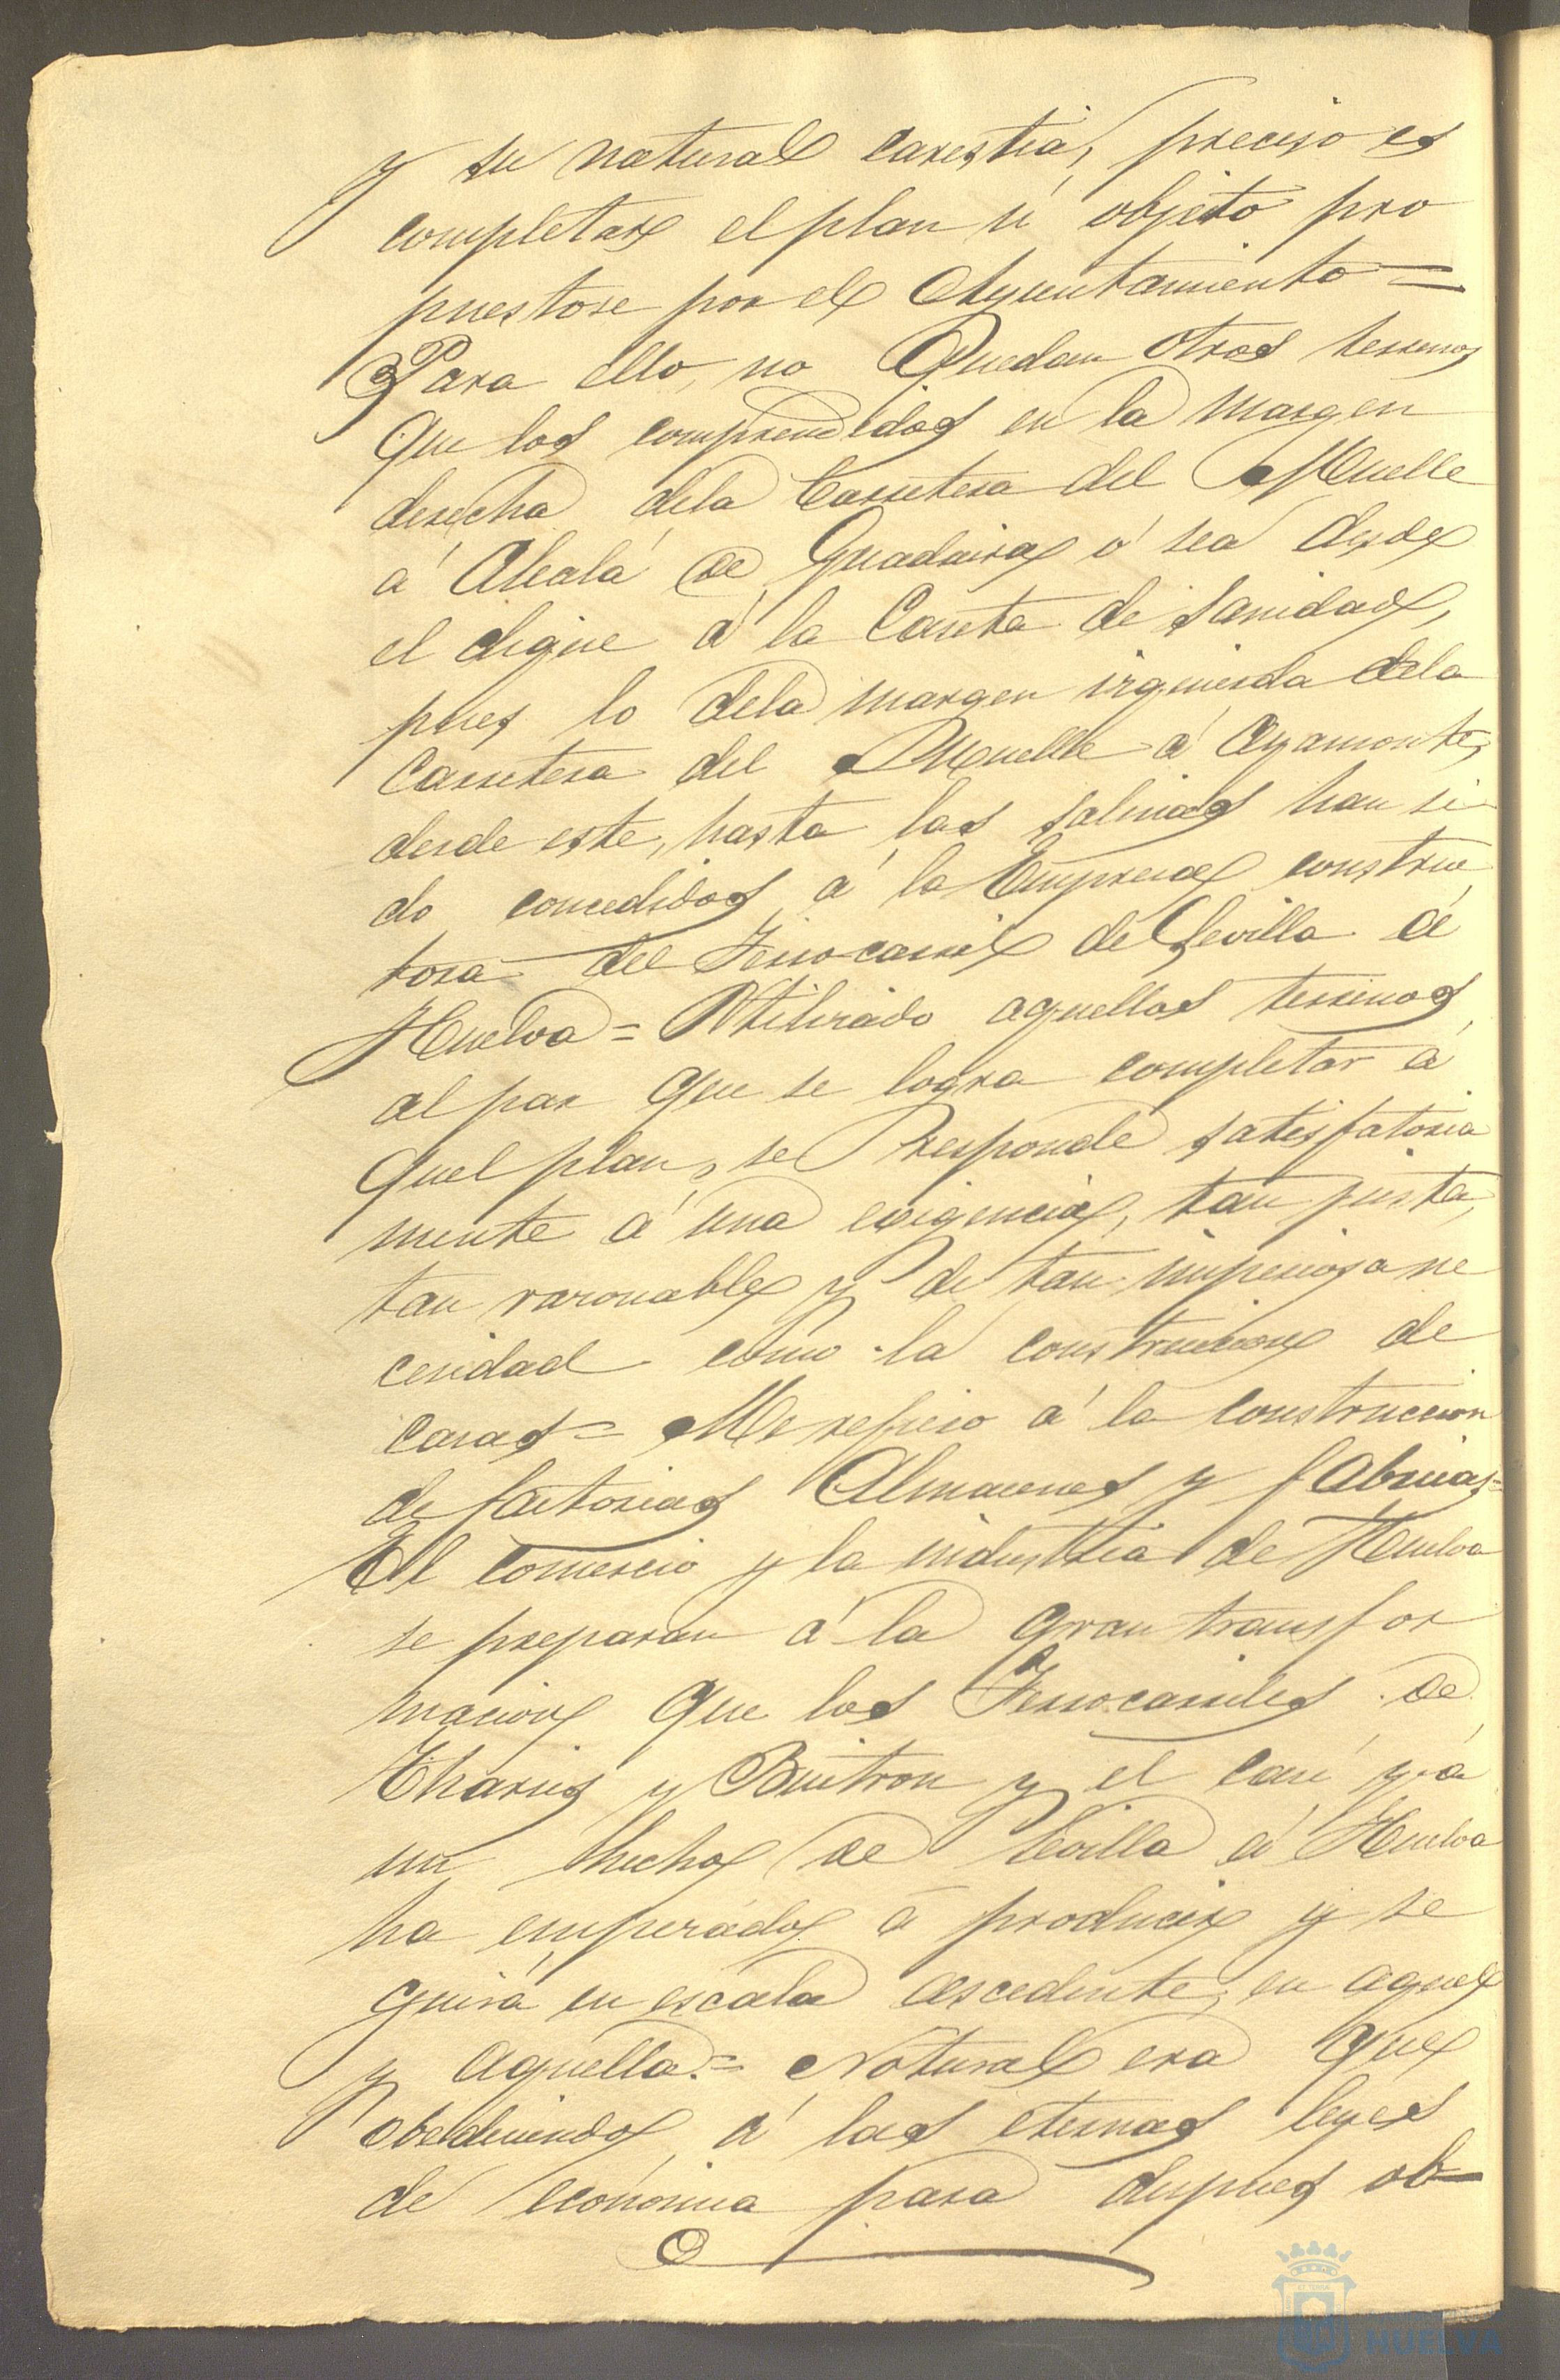 y su natural carestia, preciso es
completar el plan ú objeto pro
puestose por el Ayuntamiento=
Para ello, no Quedan otros terrenos
que los comprendidos en la margen
derecha dela Carretera del Muelle
á Alcalá de Guadaira ó sea desde
el digue á la Caseta de Sanidad,
pues lo dela margen izquierda dela
Carretera del Muelle á Ayamonte,
desde este, hasta las Salinas han si
do concedidos á la Empresa construc
tora del Ferrocarril de Sevilla á
Huelva = Utilizado aquellos terrenos
al par que se logra completar a
quel plan, se responde satisfatoria
mente á una exigencia, tan justa,
tan razonable y de tan imperiosa ne
cesidad como la construccion de
casas = Me refiero á la construccion
de factorias Almacenes y fabricas=
El comercio y la industria de Huelva
se preparan á la gran transfor
macion que los Ferrocarriles de
Tharsis y Buitron y el casi yá
un hecho de Sevilla á Huelva
ha empezado á producir y se
guirá en escala ascedente, en aquel
y aquella.= Natural era que
obedeciendo á las eternas leyes
de economia para despues ob-
HUELVA